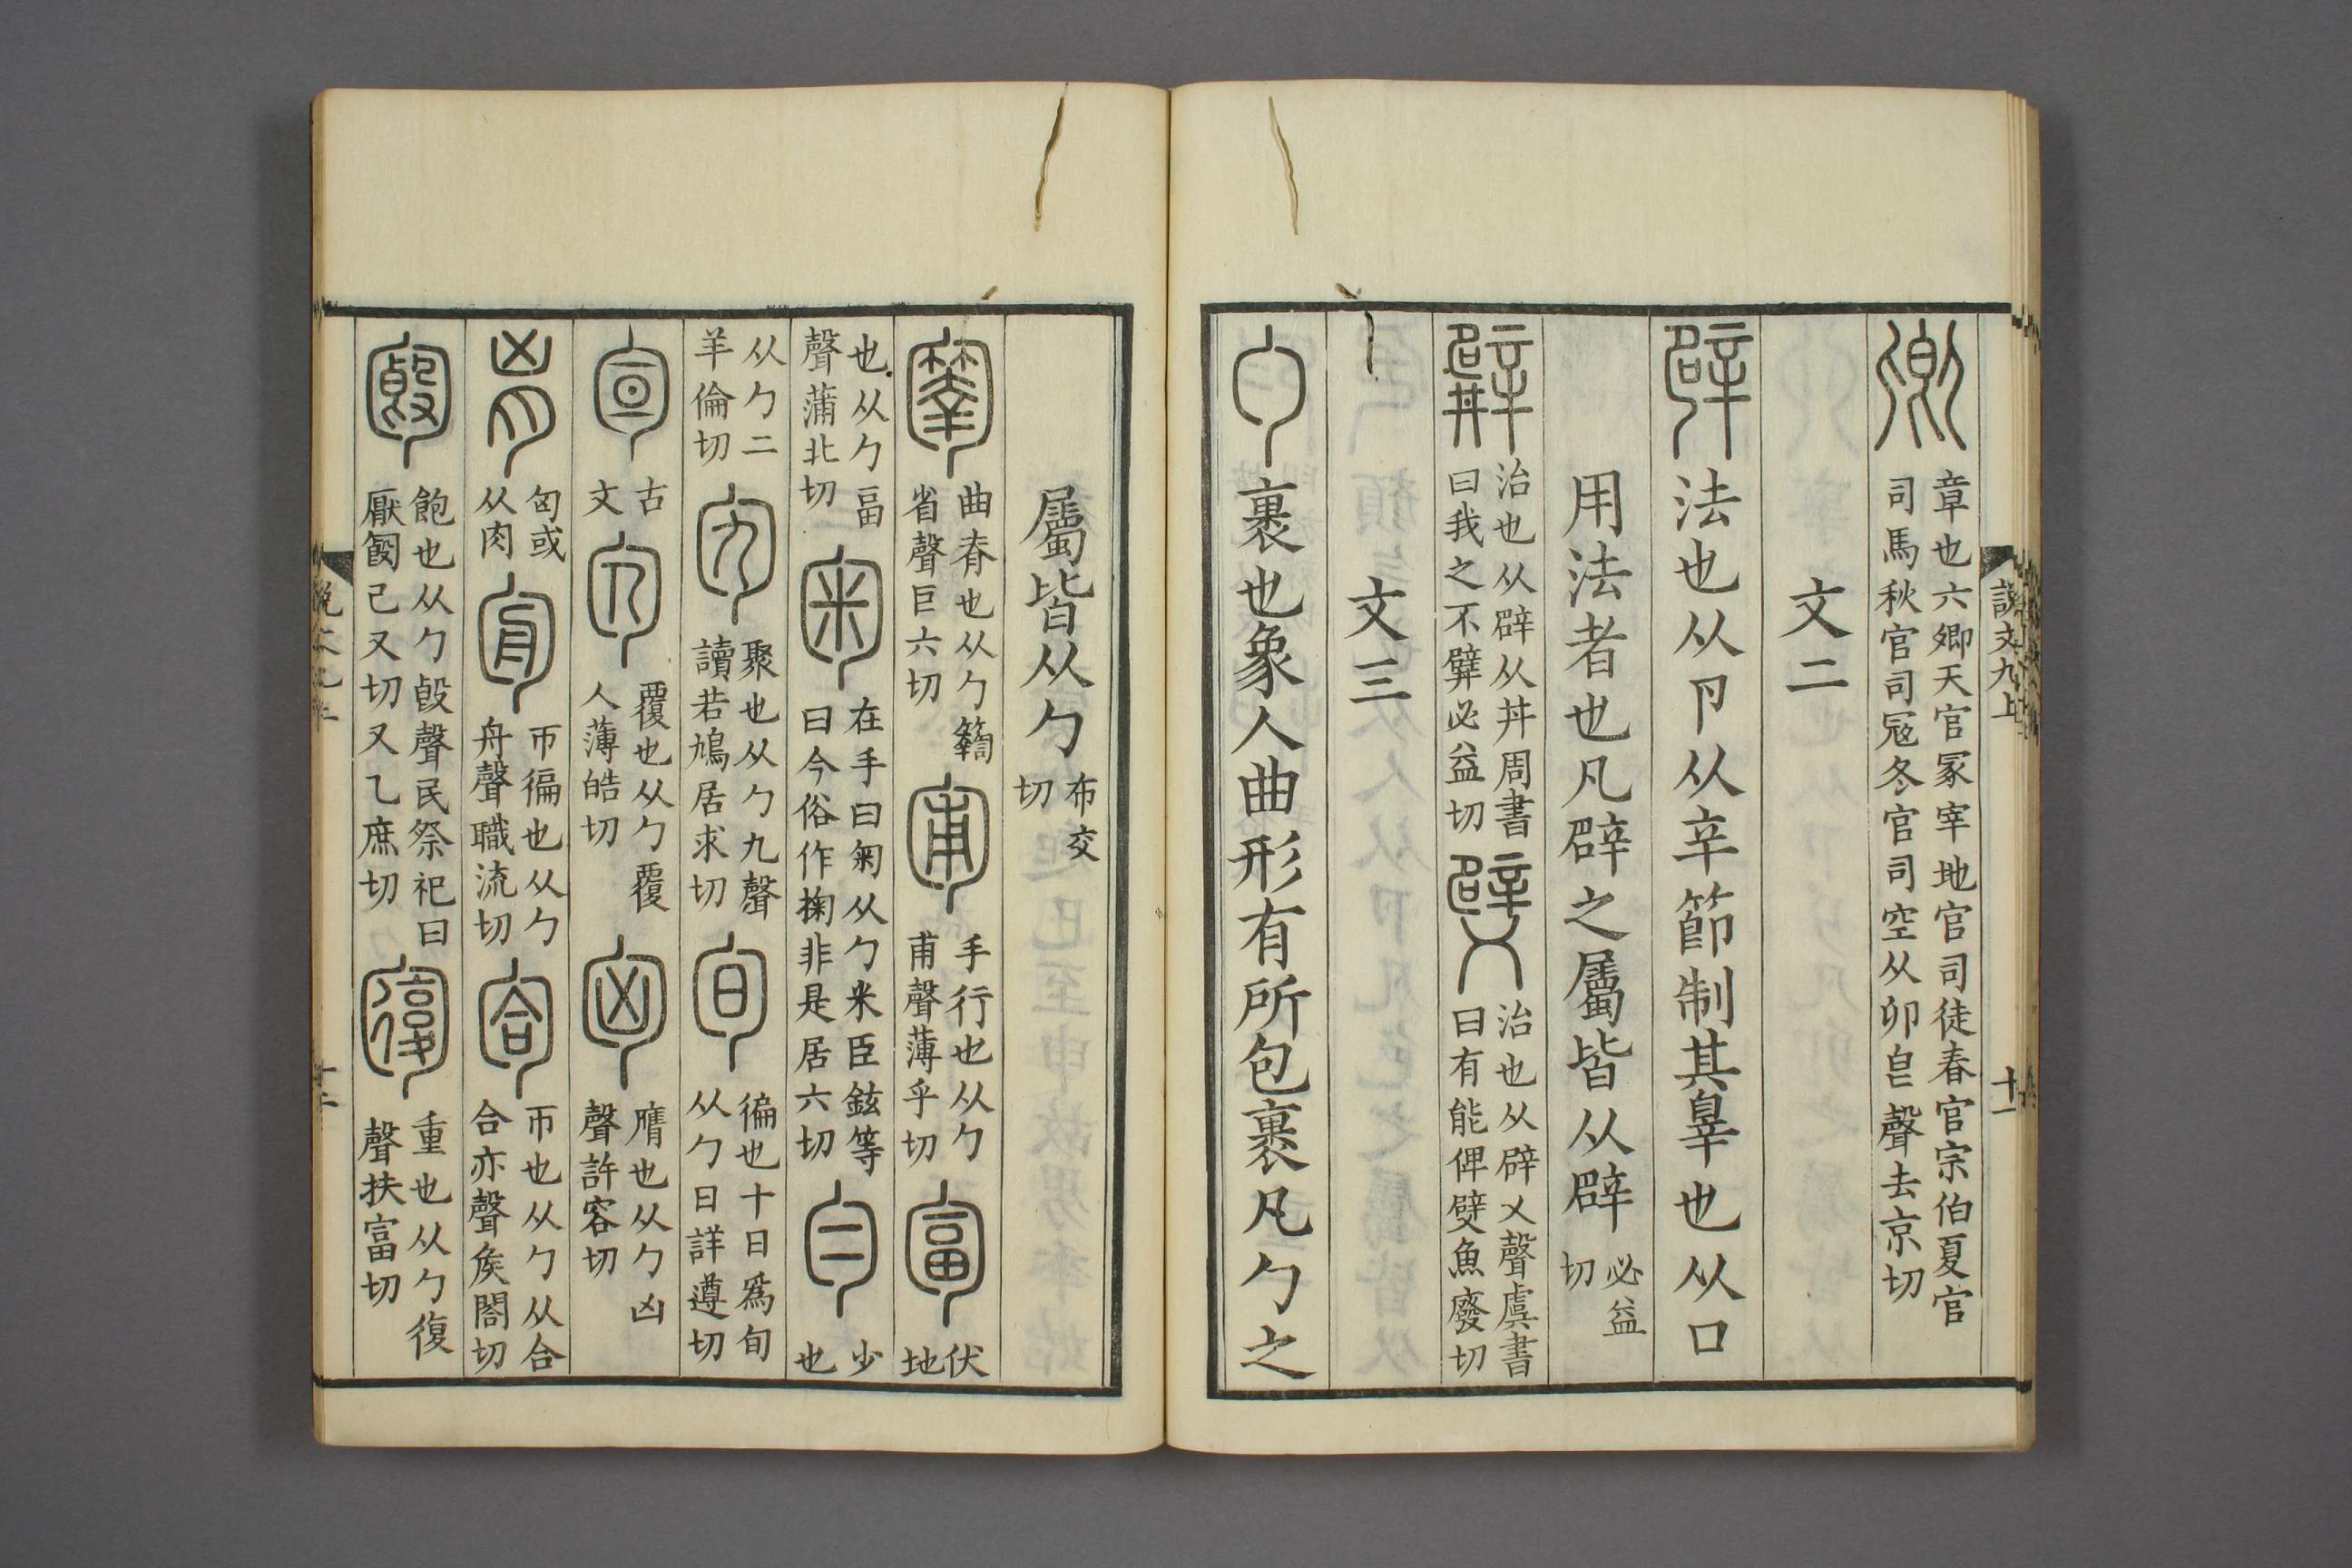 說文九上　十一
卿章也六卿天官冢宰地官司徒春官宗伯夏官司馬秋官司寇冬官司空从卯皀聲去京切
文二
辟法也从卩从辛節制其辠也从口
用法者也凡辟之屬皆从辟必益切
𨐨治也从辟从丼周書曰我之不𨐨必益切𨐢治也从辟乂聲虞書曰有能俾𨐢魚廢切
文三
勹裹也象人曲形有所包裹凡勹之
屬皆从勹布交切
曲脊也从勹省聲巨六切匍手行也从勹甫聲薄乎切匐伏地
也从勹畐聲蒲北切匊在手曰匊从勹米臣鉉等曰今俗作掬非是居六切勻少也
从勹二羊倫切勼聚也从勹九聲讀若鳩居求切旬徧也十日爲旬从勹日詳遵切
古文勽覆也从勹覆人薄皓切匈膺也从勹凶聲許容切
胷匈或从肉帀徧也从勹舟聲職流切匌帀也从勹从合合亦聲矦閤切
飽也从勹㱿聲民祭祀曰厭己又切又乙庶切重也从勹復聲扶富切